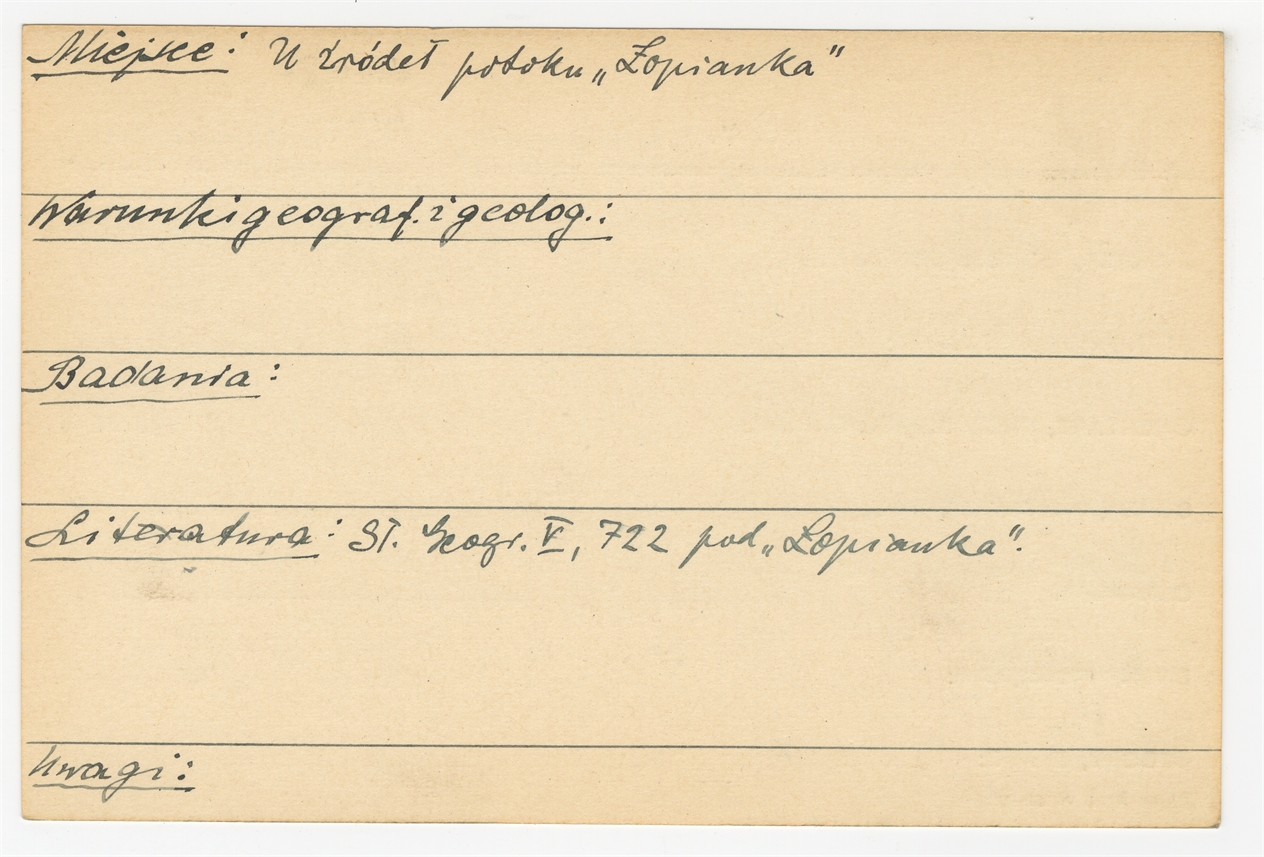 Miejsce: U źródeł potoku „Łopianka"
Warunki geograf. i geolog.:
Badania:
Literatura: Sł. Geogr. V, 722 pod „Łopianka".
Uwagi: